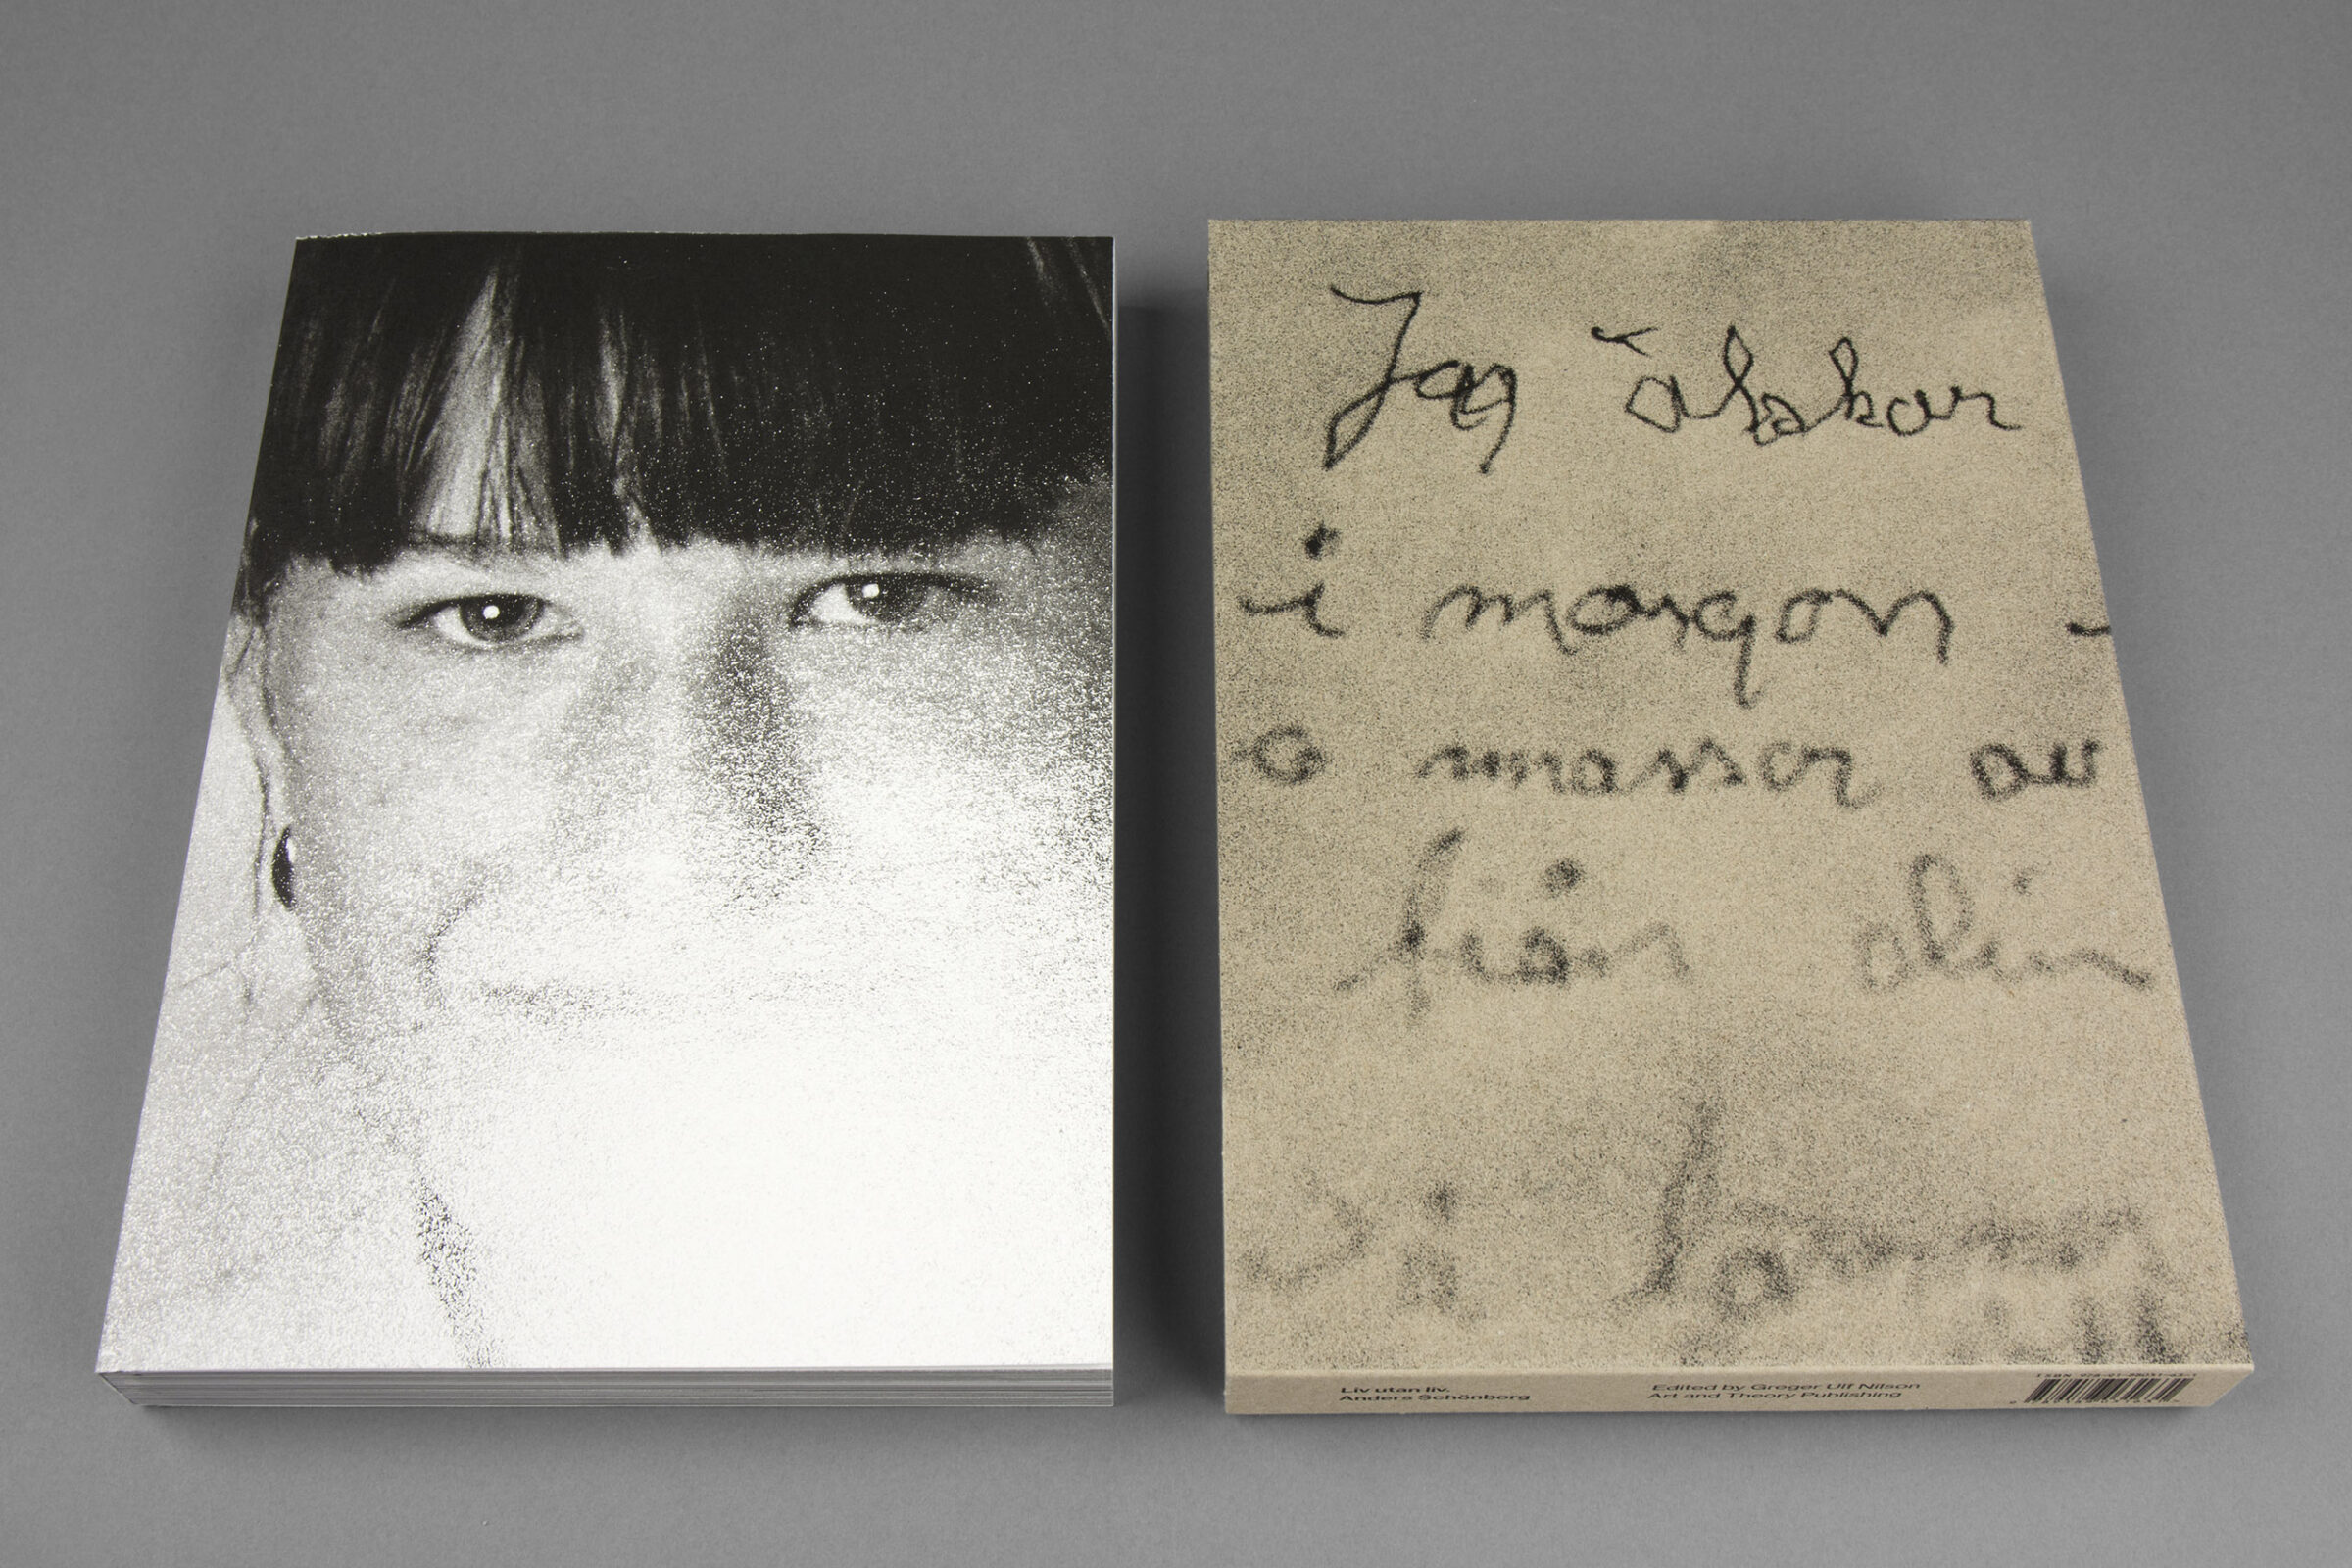 Jag älskar
i morgon -
massor av
från din
Liv utan liv.
Anders Schönborg
Edited by Greger Ulf Nilson
Art and Theory Publishing